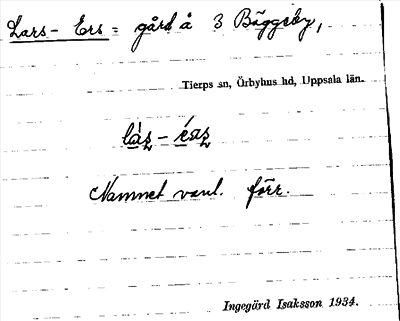 Lars-Ers = gård å 3 Bäggeby,
Tierps sn, Örbyhus hd, Uppsala län.
Namnet vanl. förr.
Ingegärd Isaksson 1934.